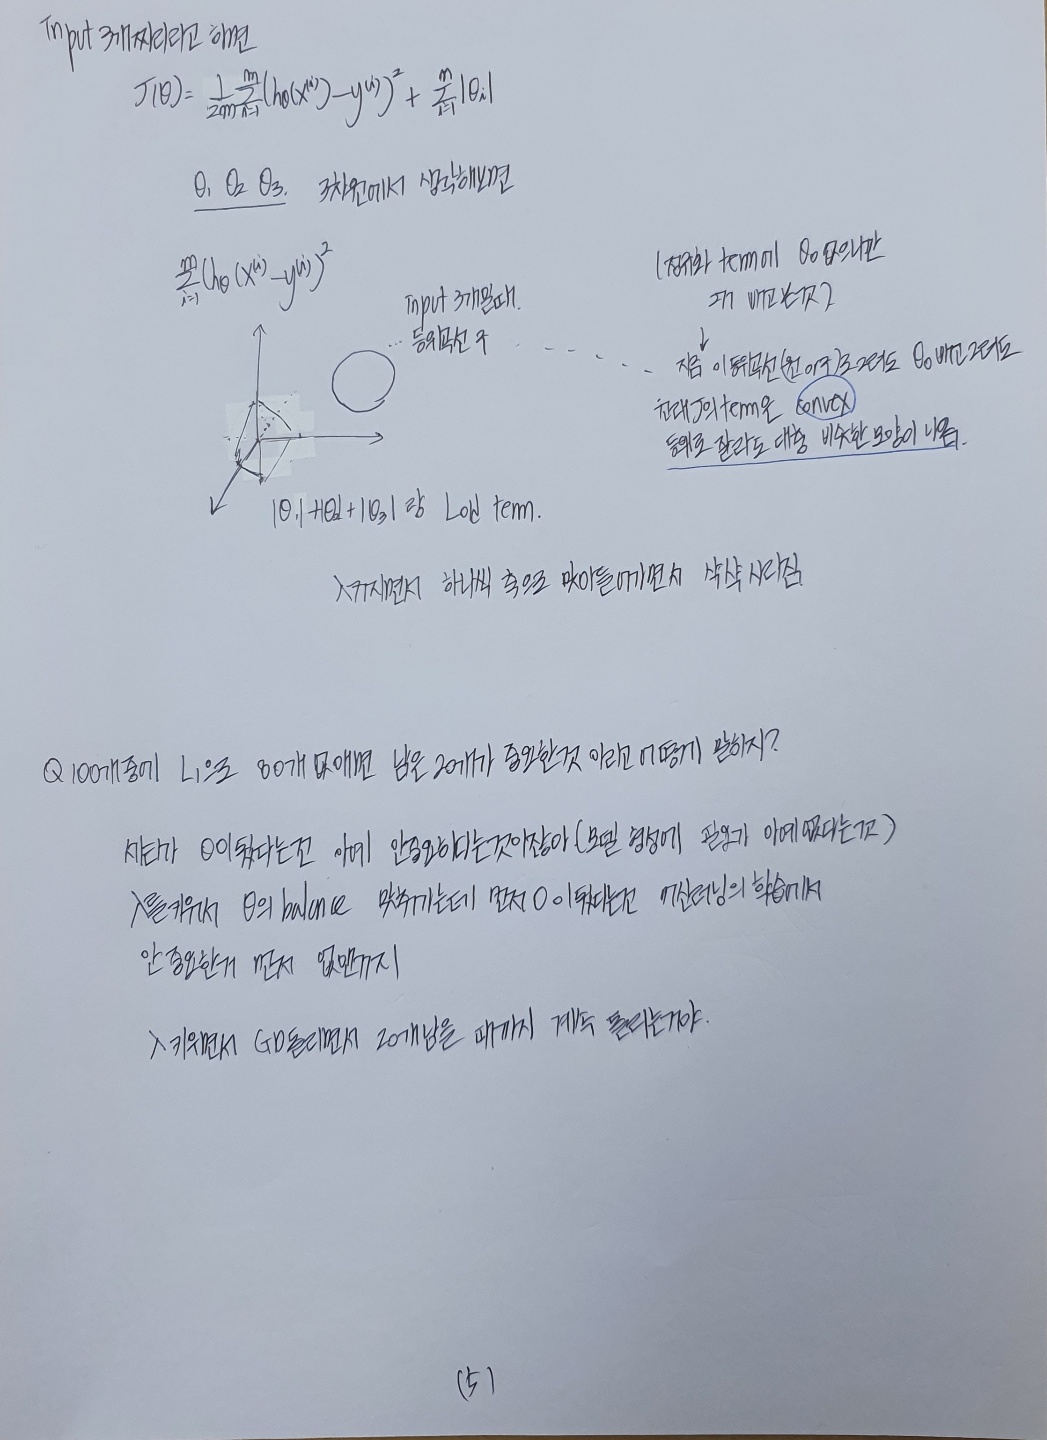 Input 3개짜리라고 하면
J(θ) = 1/2m m∑i=1 (hθ(x⁽ⁱ⁾) - y⁽ⁱ⁾)² + n∑i=1 |θi|
θ₁ θ₂ θ₃. 3차원에서 생각해보면
m∑i=1 (hθ(x⁽ⁱ⁾ - y⁽ⁱ⁾)²
Input 3개일때.
등위곡선 구
(정규화 term에 θ₀ 없으니까
빼고 는것)
지금 이 등위곡선(원 이구)로 그려도 θ₀ 빼고 그려도
원래 J의 term은 convex
등위로 잘라도 대충 비슷한 모양이 나옴.
|θ₁|+|θ₂|+|θ₃| 랑 Loss term.
λ커지면서 하나씩 축으로 맞아들어가면서 삭삭 사라짐
Q 100개중에 L₁으로 80개 없애면 남은 20개가 중요한것 이라고 어떻게 말하지?
세타가 0이 됐다는건 아예 안중요하다는것이잖아 (모델 형성에 필요가 아예 없다는거)
λ를 키워서 θ의 balance 맞춰가는데 먼저 0이 됐다는건 머신러닝의 학습에서
안 중요한거 먼저 없앤까지
λ키우면서 GD돌리면서 20개 남을 때까지 계속 돌리는거야.
(5)